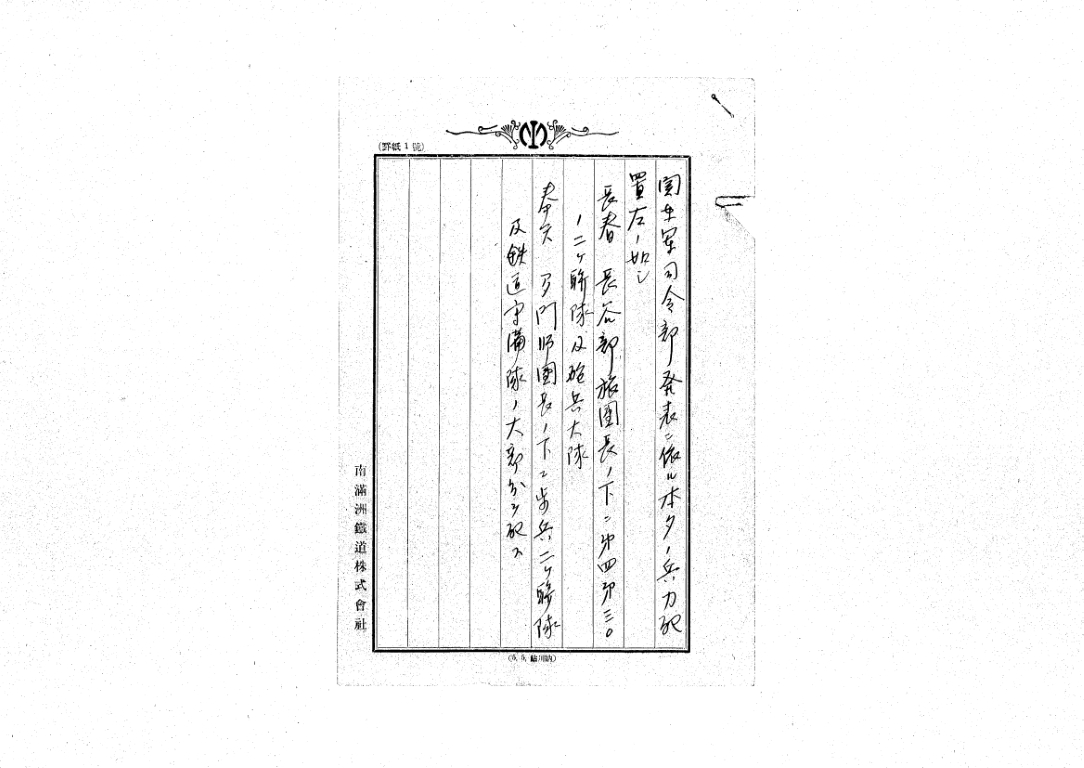 (罫紙1號)
関東軍司令部発表ニ依ル本夕ノ兵力配
置左ノ如シ
長春　長谷部旅團長ノ下ニ第四第三〇
ノ二ケ聯隊及砲兵大隊
奉天　多門師團長ノ下ニ歩兵二ケ聯隊
及鉄道守備隊ノ大部分ヲ配ス
南滿洲鐵道株式會社